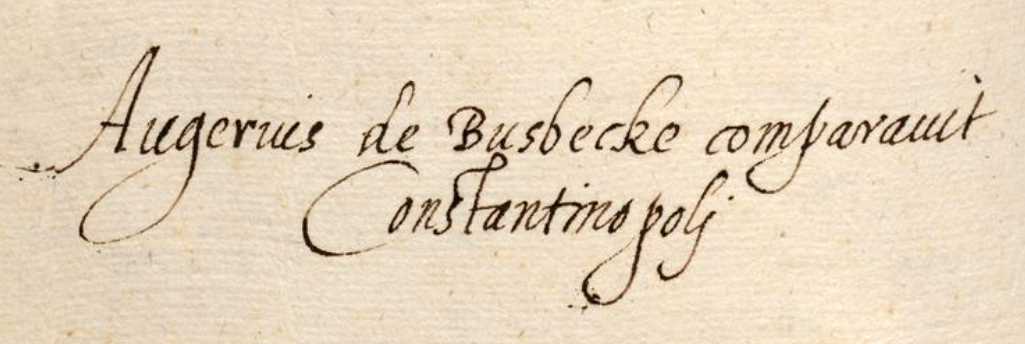 Augerius de Busbecke comparauit
Constantinopolj